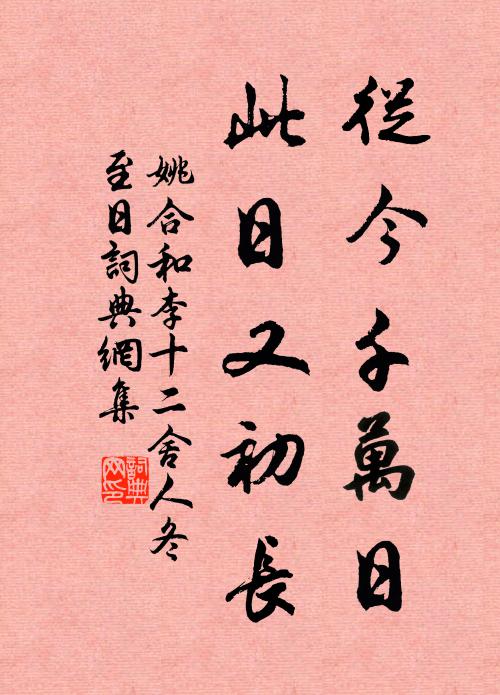 從今千萬日
此日又初長
姚合和李十二舍人冬
至日詞典網集
詞典
网印